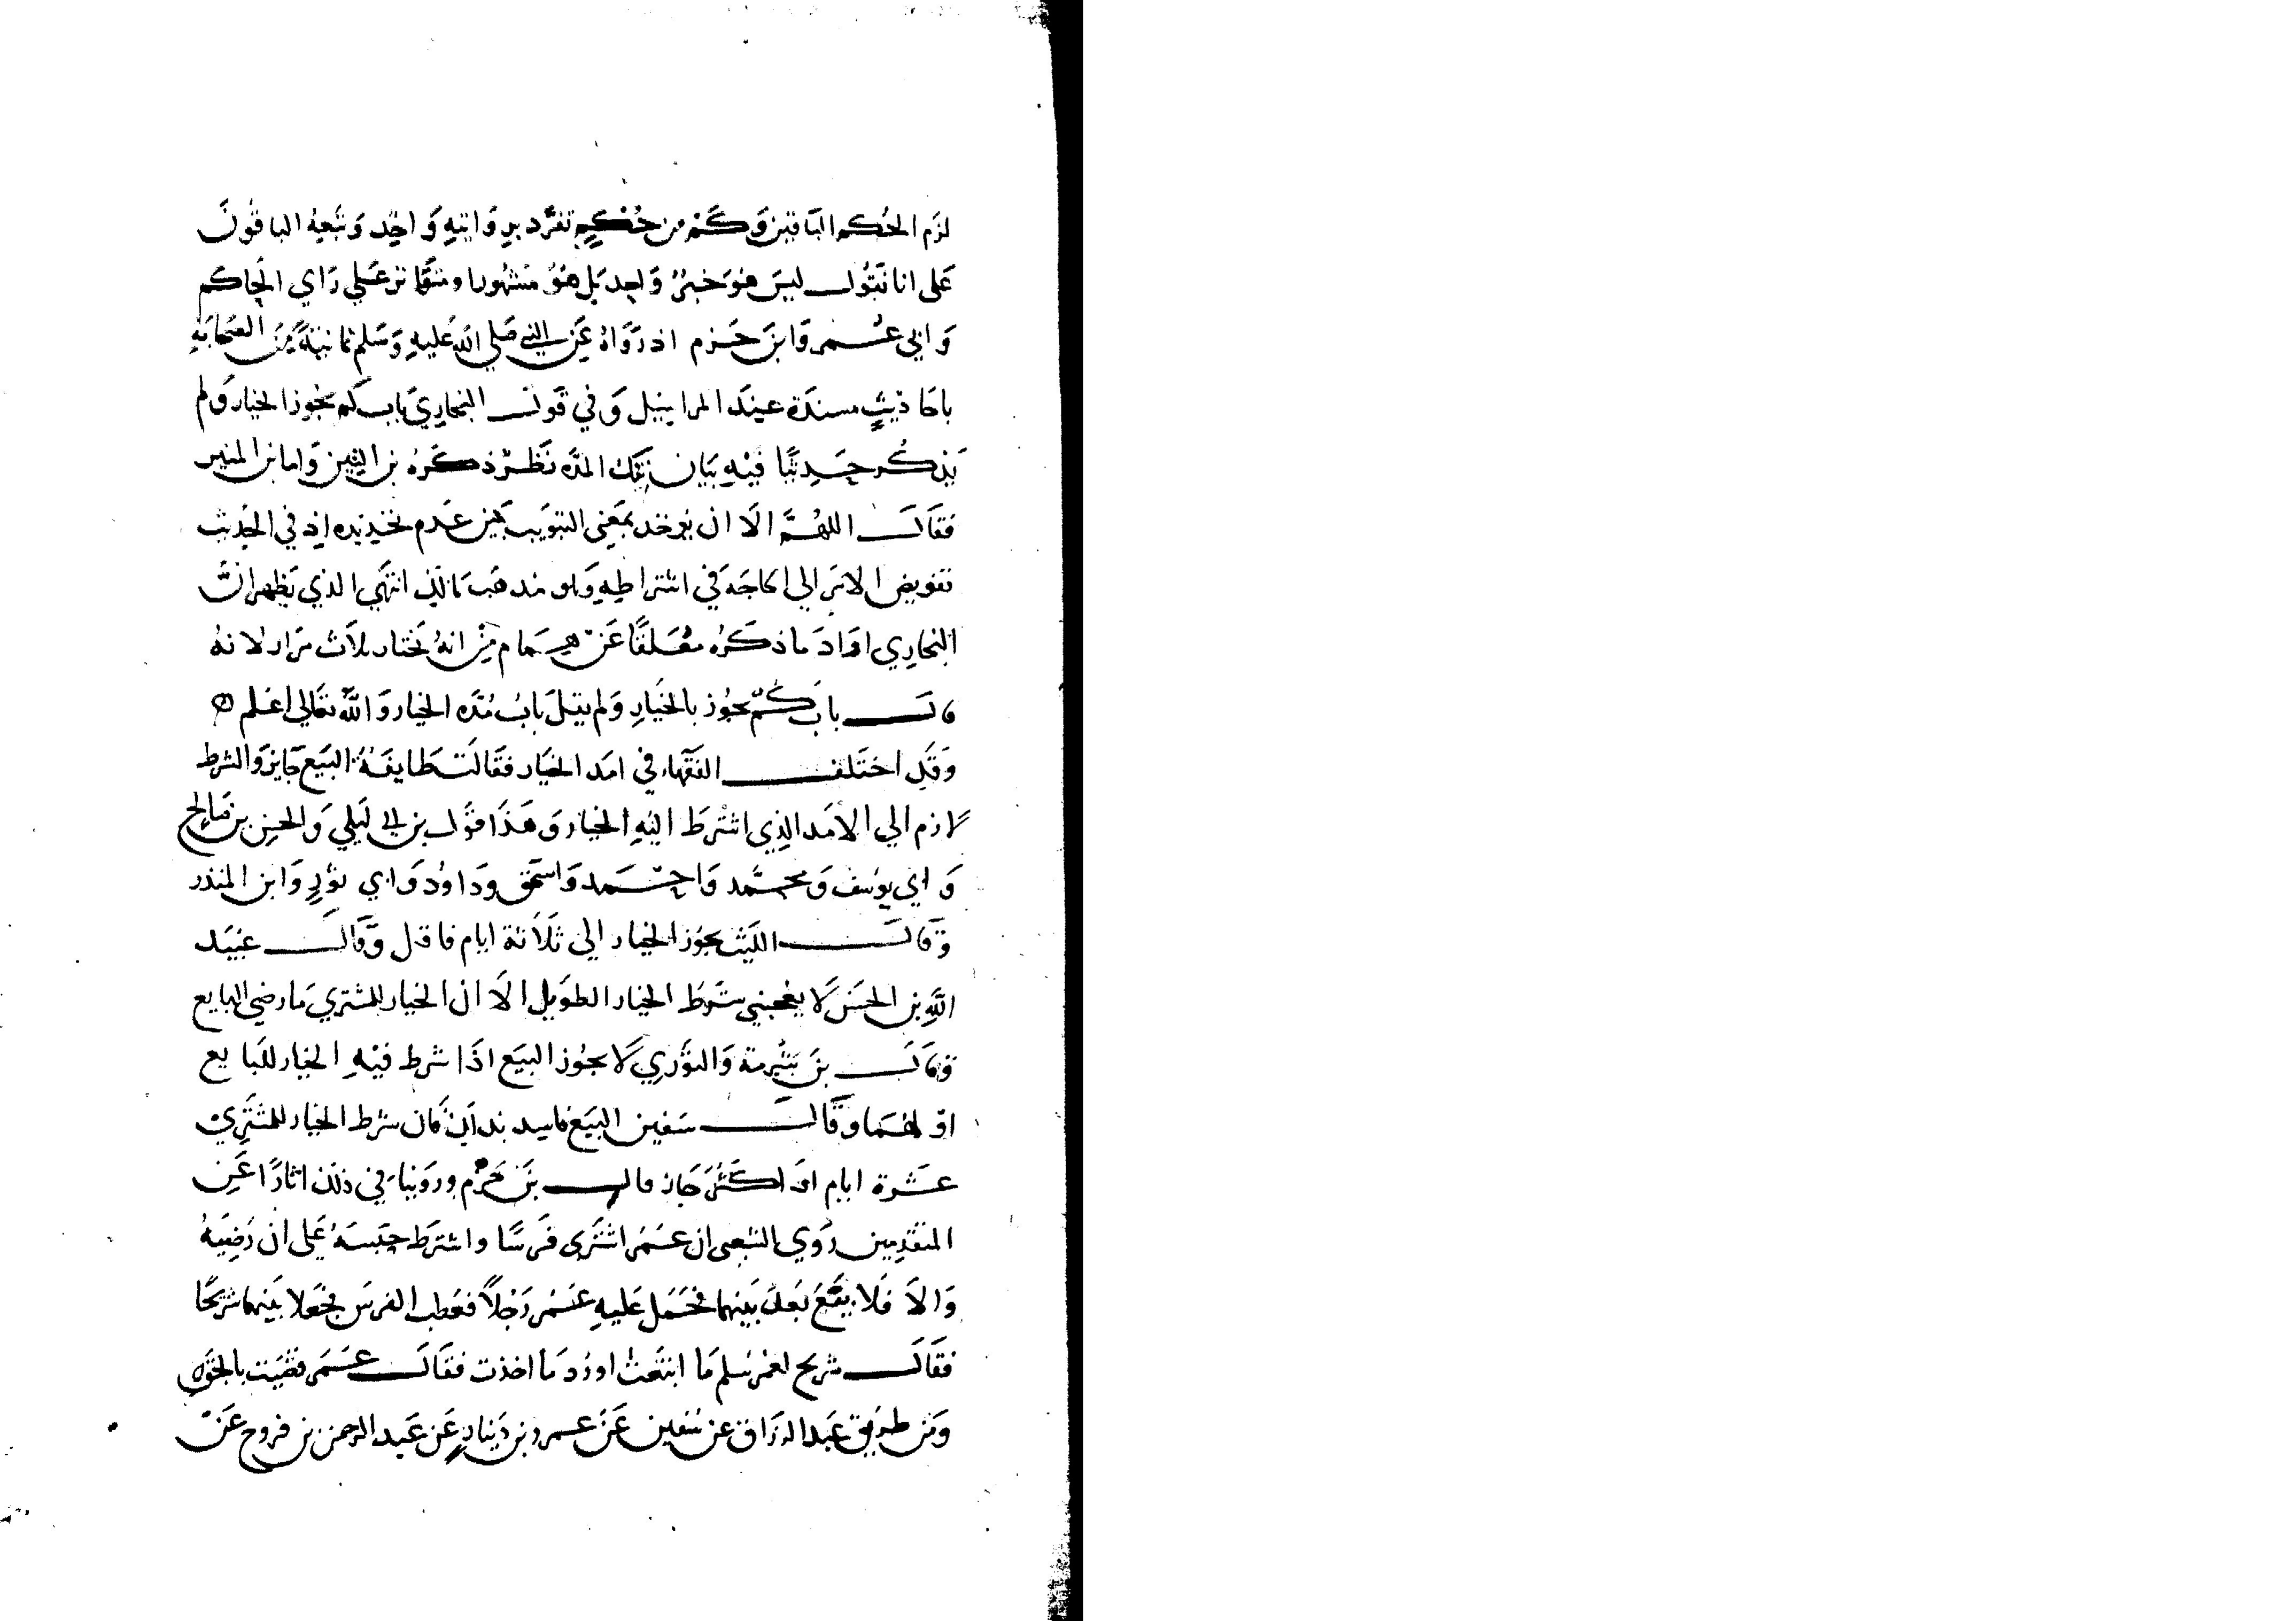 لزم الحكم الباقين وكم من حكم تفرد بروايته واحد وتبعه الباقون
على انا نقول ليس هو خبر واحد بل هو مشهورا ومتواتر على راي الحاكم
وابي عمر وابن حزم اذ رواه عن النبي صلى الله عليه وسلم ثمانية من الصحابة
باحاديث مسندة عند المراسيل وفي قول البخاري باب كم يجوز الخيار ولم
يذكر حديثا فيه بيان تلك المدة نظر ذكره بن التين واما بن المنير
فقال اللهم الا ان يوخذ بمعنى التبويب من عدم تحديده اذ في الحديث
تفويض الامر الى الحاجة في اشتراطه وهو مذهب مالك انتهى الذي يظهر ان
البخاري اراد ما ذكره معلقا عن همام من انه يختار ثلاث مرار لانه
قال باب كم يجوز بالخيار ولم يقل باب مدة الخيار والله تعالى اعلم ه
وقد اختلف الفقهاء في امد الخيار فقالت طايفة البيع جايز والشرط
لازم الي الامد الذي اشترط اليه الخيار وهذا قول بن ابي ليلي والحسن بن صالح
وابي يوسف ومحمد واحمد واسحق وداود وابي ثور وابن المنذر
وقال الليث يجوز الخيار الي ثلاثة ايام فاقل وقال عبيد
الله بن الحسن لا يعجبني شرط الخيار الطويل الا ان الخيار للمشتري ما رضي البايع
وقال بن شبرمة والثوري لا يجوز البيع اذا شرط فيه الخيار للبايع
او لهما وقال سفين البيع فاسد بذلك فان شرط الخيار للمشتري
عشرة ايام او اكثر جاز قال بن حزم وروينا في ذلك اثارا عن
المتقدمين روي الشعبي ان عمر اشترى فرسا واشترط حبسه على ان رضيه
والا فلا بيع بعد بينهما فحمل عليه عمر رجلا فعطب الفرس فجعلا بينهما شريحا
فقال شريح لعمر سلم ما ابتعت او رد ما اخذت فقال عمر قضيت بالحق
ومن طريق عبد الرزاق عن سفين عن عمرو بن دينار عن عبد الرحمن بن فروخ عن